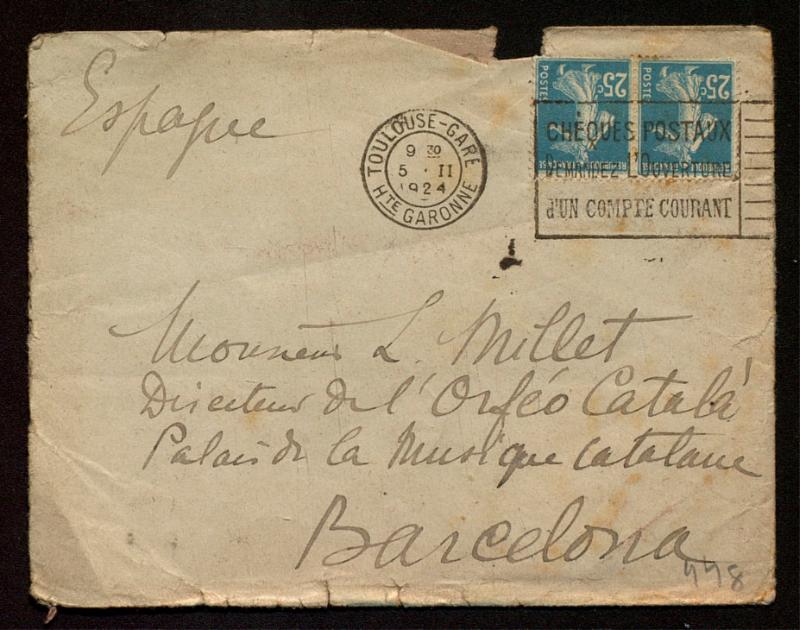 Espagne
TOULOUSE-GARE
9 30
5 · II
1924
HTE GARONNE
25c 25c
POSTES POSTES
REPUBLIQUE FRANÇAISE REPUBLIQUE FRANÇAISE
CHÈQUES POSTAUX
DEMANDEZ L'OUVERTURE
d'UN COMPTE COURANT
Monsieur L. Millet
Directeur de l'Orféó Catalá
Palais de la Musique catalane
Barcelona
448